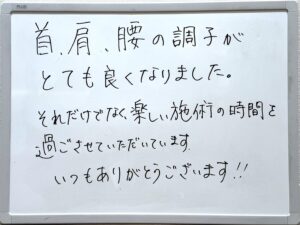 PLUS
首、肩、腰の調子が
とても良くなりました。
それだけでなく、楽しい施術の時間を
過ごさせていただいています
いつもありがとうございます!!